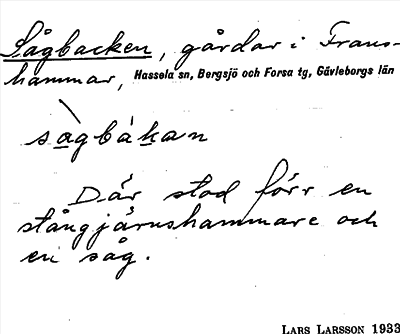 Sågbacken, gårdar i Frans-
hammar, Hassela sn, Bergsjö och Forsa tg, Gävleborgs län
sàgbàkan
Där stod förr en
stångjärnshammare och
en såg.
LARS LARSSON 1933